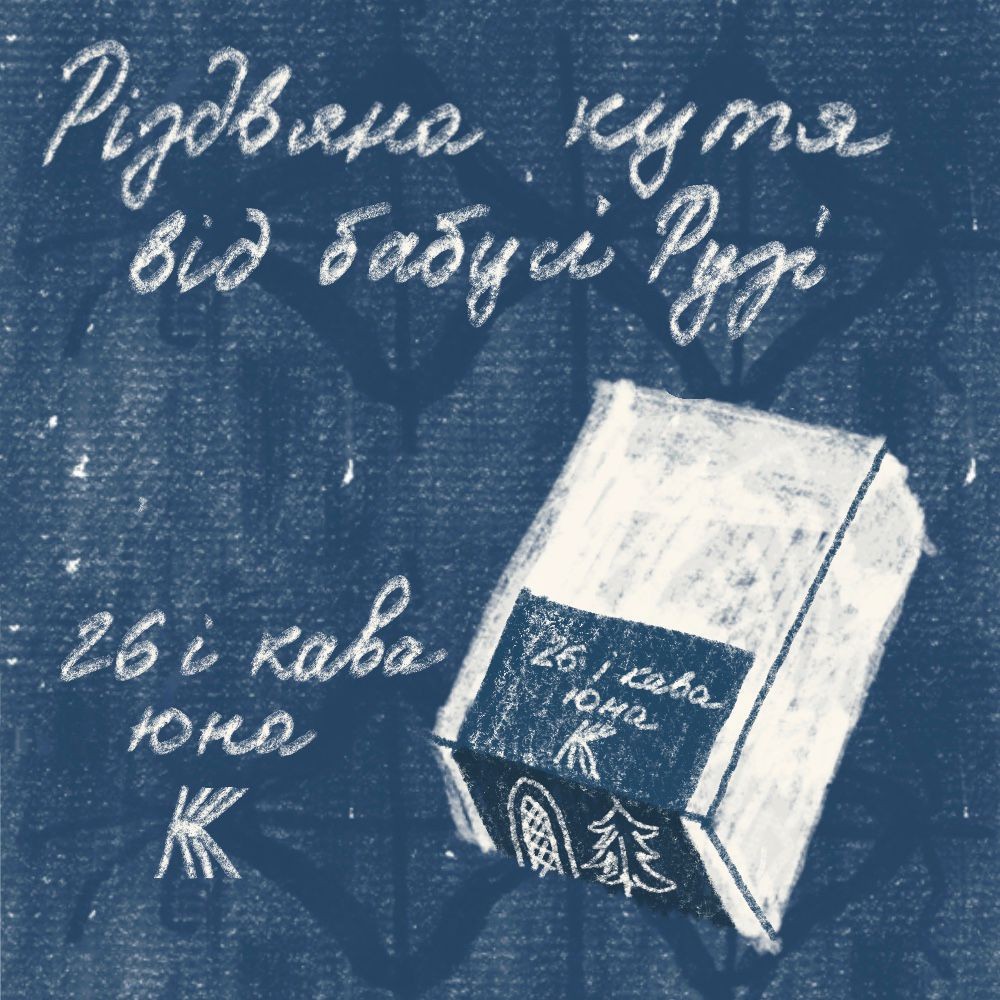 Різдвяна кутя
від бабусі Рузі
26 і кава
юна
26 і кава
юна